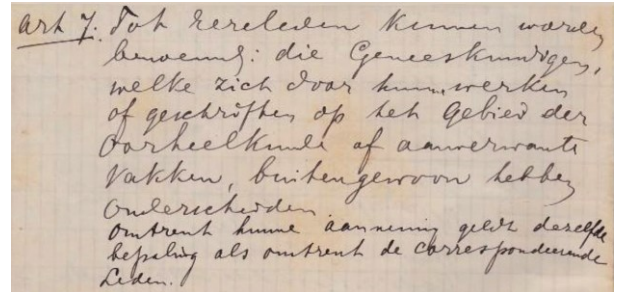 Art 7. Tot Eereleden kunnen worden
benoemd: die Geneeskundigen,
welke zich door hunne werken
of geschriften op het Gebied der
Oorheelkunde of aanverwante
Vakken, buitengewoon hebben
Onderscheiden.
omtrent hunne aanneming geldt dezelfde
bepaling als omtrent de correspondeerende
Leden.